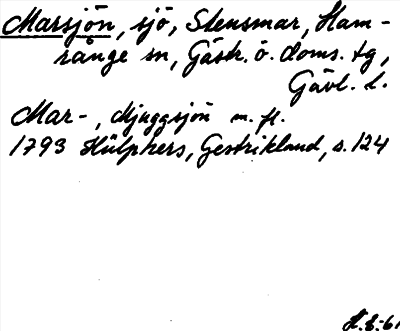 Marsjön, sjö, Stensmar, Ham-
rånge sn, Gästr. ö. doms. tg,
Gävl. l.
Mar-, Mjuggsjön m. fl.
1793 Hülphers, Gestrikland, s. 124
H.E-61